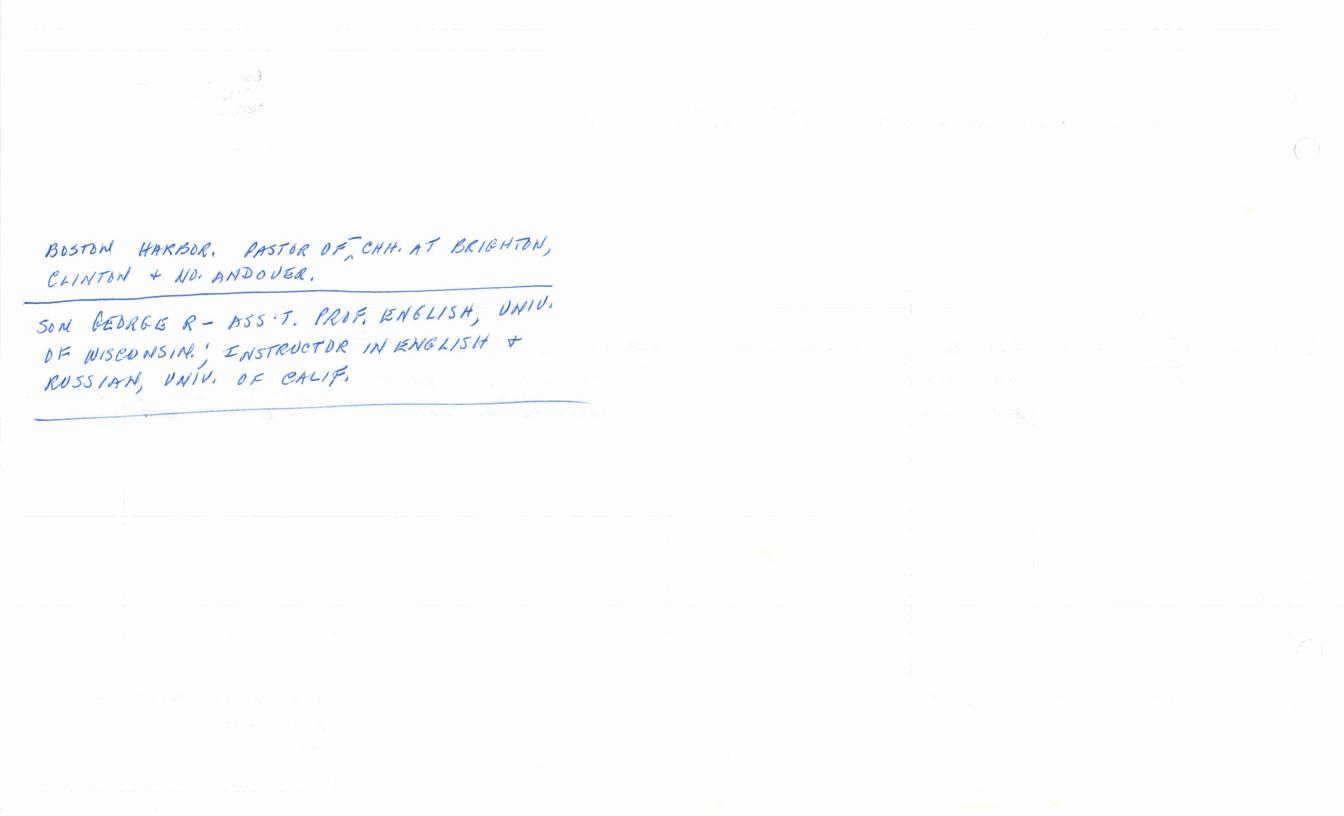 BOSTON HARBOR. PASTOR OF CHH. AT BRIGHTON,
CLINTON + NO. ANDOVER.
SON GEORGE R - ASS'T. PROF. ENGLISH, UNIV.
OF WISCONSIN.; INSTRUCTOR IN ENGLISH +
RUSSIAN, UNIV. OF CALIF.